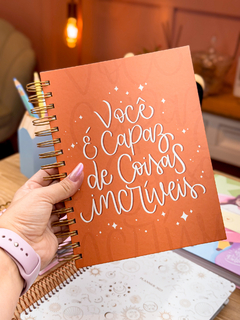 Você
é capaz
de Coisas
incríveis